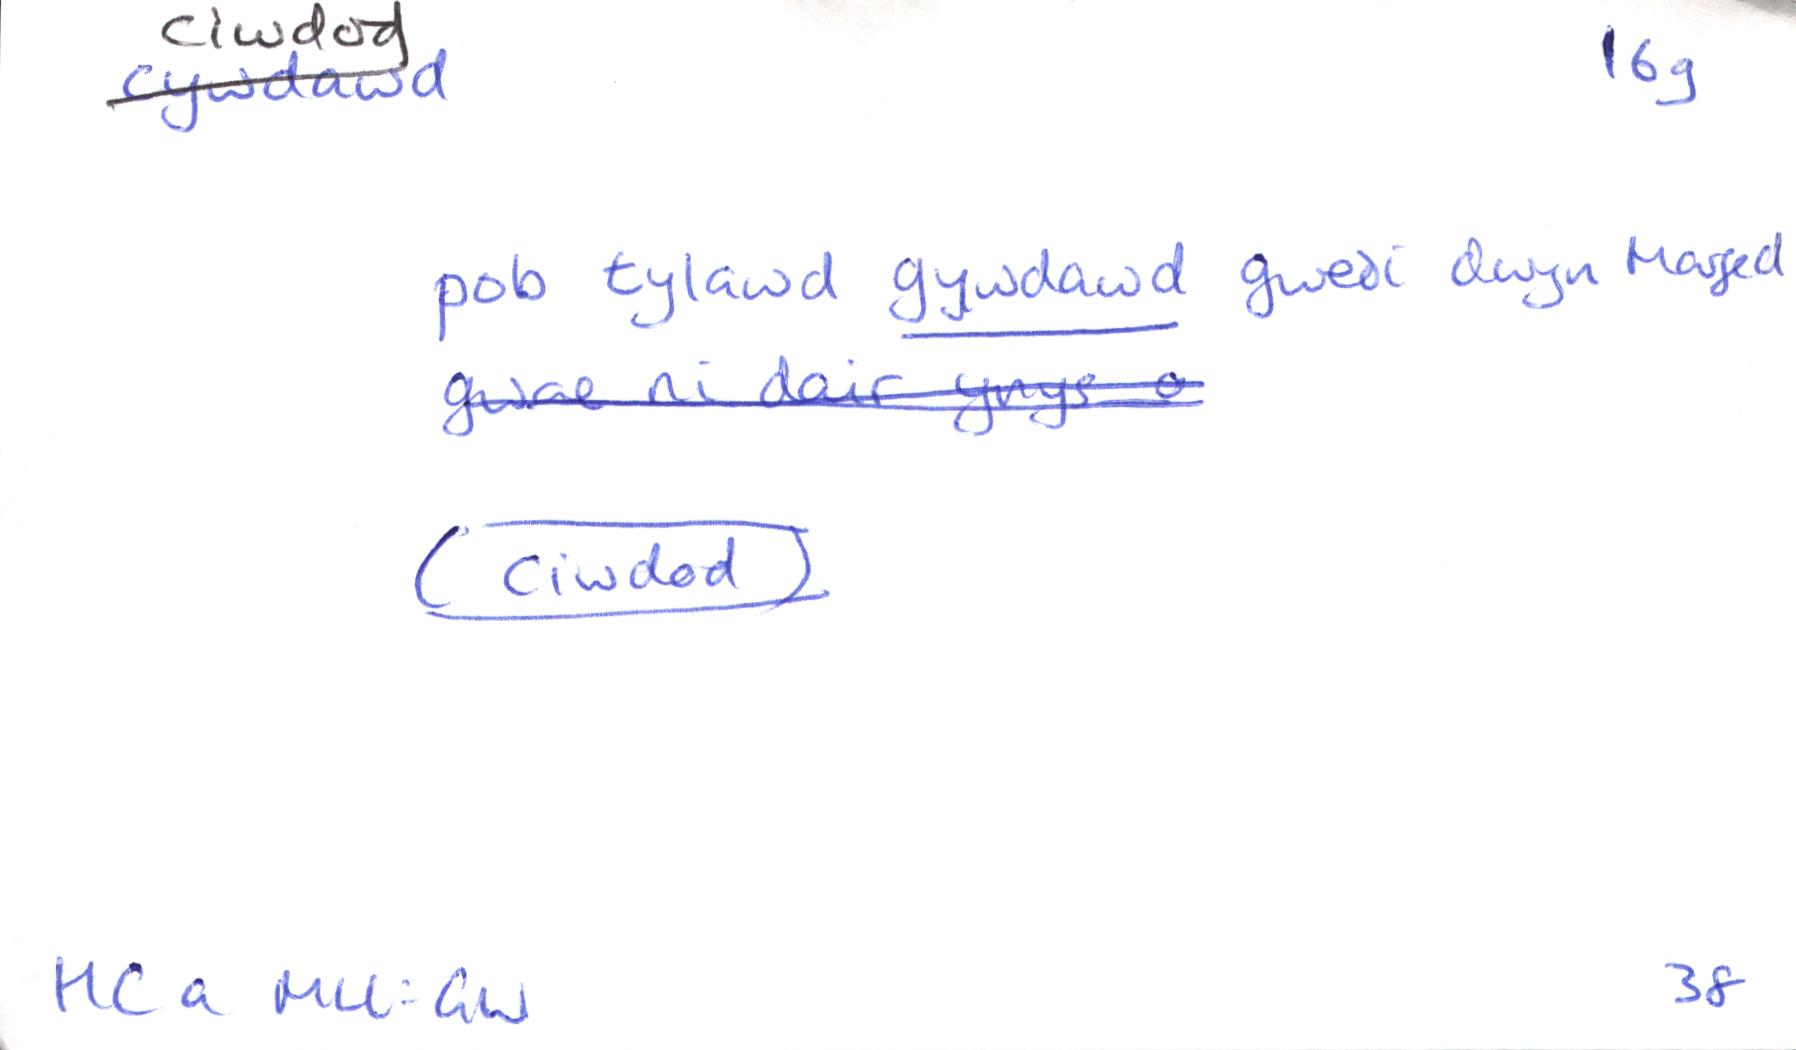 ciwdod
cywdawd
16g
pob tylawd gywdawd gwedi dwyn Marged
gwae ni dair ynys o
(ciwdod)
HC a MLl: GW
38